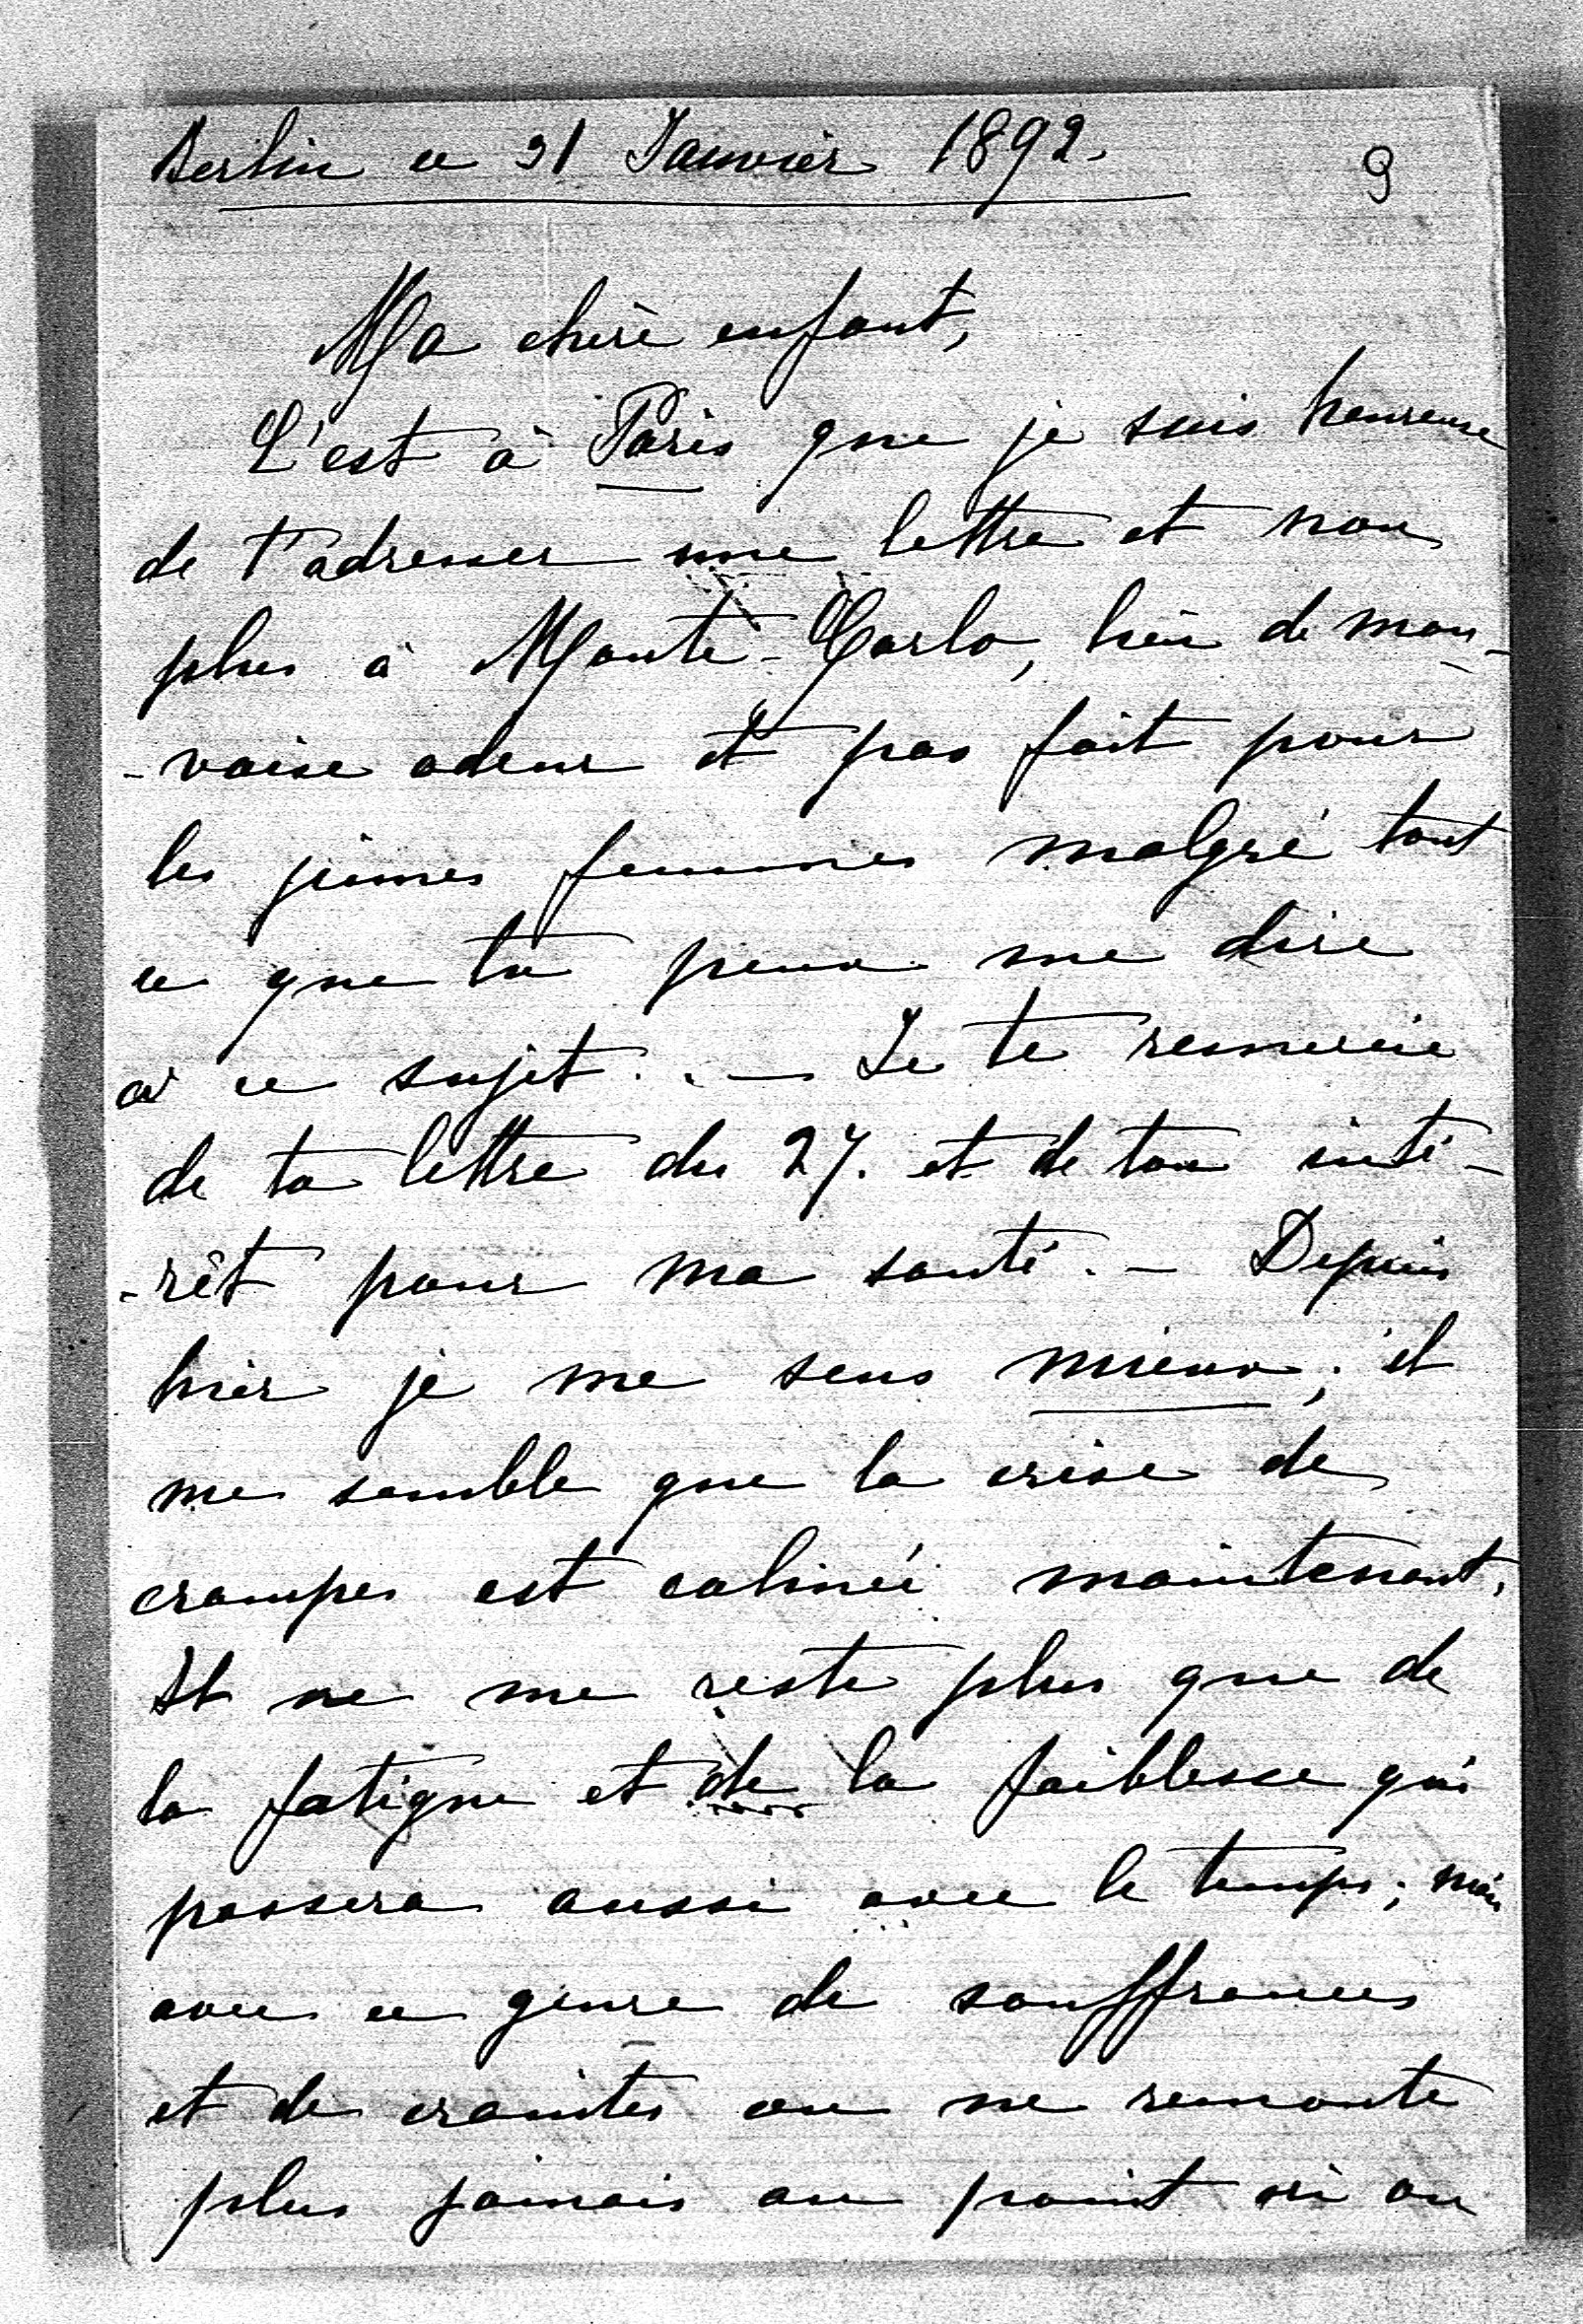 Berlin ce 31 Janvier 1892.
9
Ma chère enfant,
C'est à Paris que je suis heureuse
de t'adresser une lettre et non
plus à Monte-Carlo, lieu de mau-
-vaise odeur et pas fait pour
les jeunes femmes malgré tout
ce que tu peux me dire
à ce sujet. — Je te remercie
de ta lettre du 27. et de ton inté-
-rêt pour ma santé. — Depuis
hier je me sens mieux; il
me semble que la crise de
crampes est calmée maintenant.
Il ne me reste plus que de
la fatigue et de la faiblesse qui
passera aussi avec le temps; mais
avec ce genre de souffrances
et de craintes on ne remonte
plus jamais au point où on